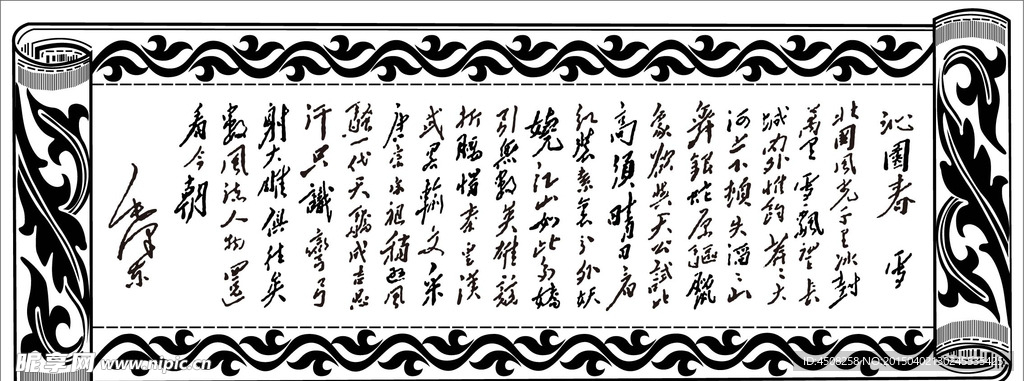 沁园春 雪
北国风光千里冰封
万里雪飘望长
城内外惟馀莽二大
河上下顿失滔二山
舞银蛇原驱蜡
象欲与天公试比
高须晴日看
红装素裹分外妖
娆江山如此多娇
引无数英雄竞
折腰惜秦皇汉
武略输文采
唐宗宋祖稍逊风
骚一代天骄成吉思
汗只识弯弓
射大雕俱往矣
数风流人物还
看今朝
毛泽东
昵享网 www.nipic.cn